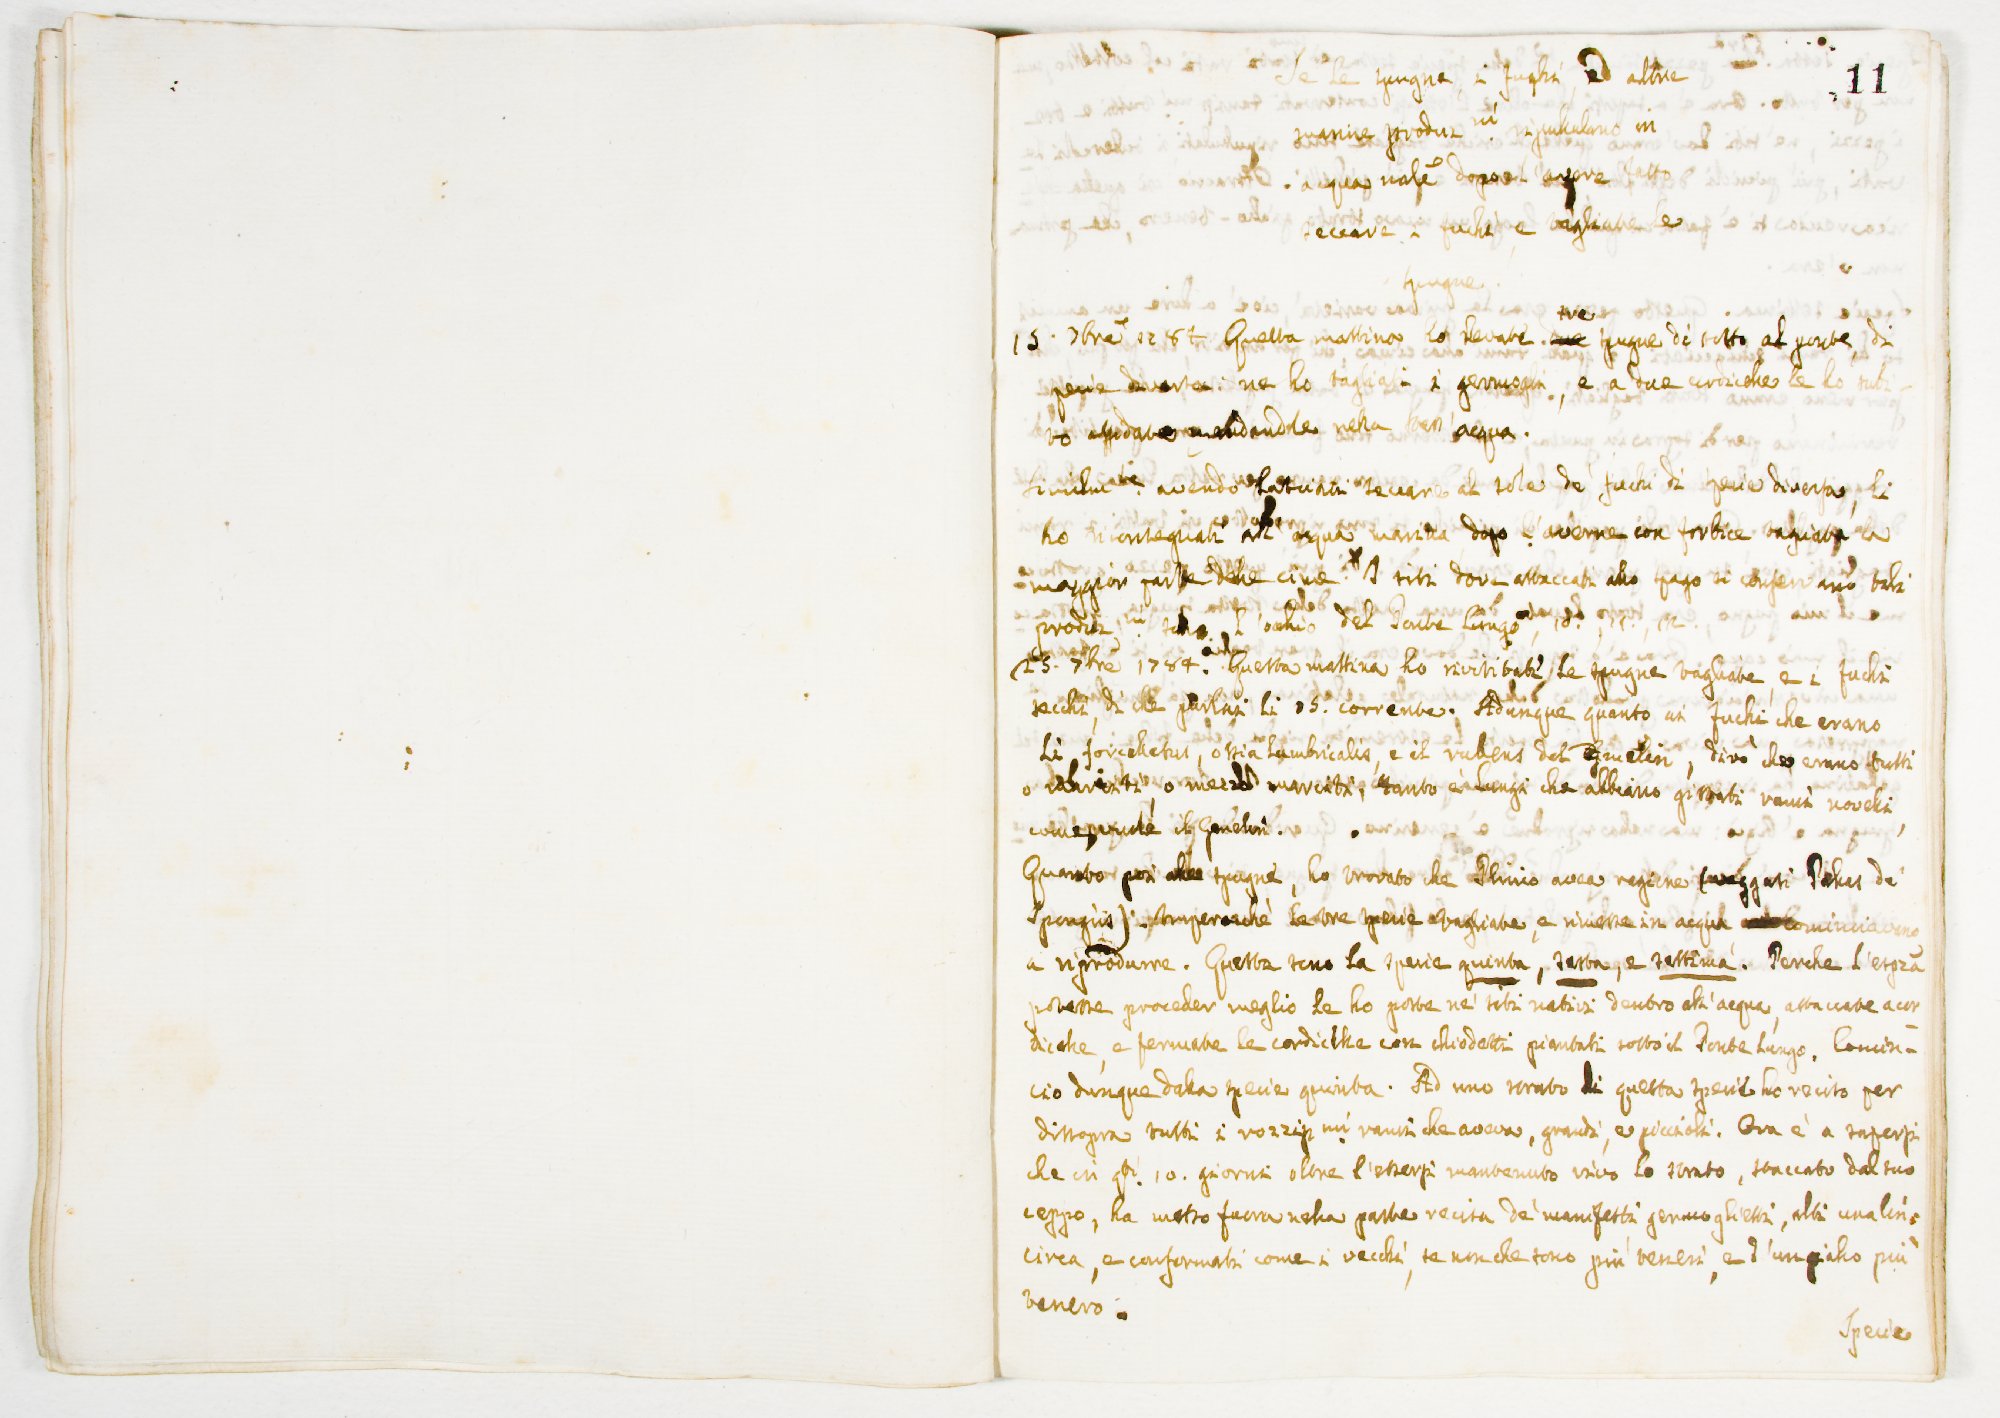 11
Se le spugne, i fughi, ed altre
marine produz.ni ripullulano in
acqua nat.le dopo l'avere fatto
seccare i fuchi, e tagliate le
spugne.
15. 7bre 1784 Questa mattina ho levate tre spugne di sotto al ponte, di
specie diversa: ne ho tagliati i germogli, e a due cordicelle le ho subi-
to affidate mandandole nella stess' acqua.
Similm.te avendo lasciati seccare al sole de' fuchi di specie diversa, li
ho riconsegnati all' acqua marina dopo l'averne con forbice tagliata la
maggior parte delle cime. I siti dove attaccati allo spago si conservano tali
produz.ni sono l'occhio del Ponte Lungo, 10., 11., 12.
25. 7bre 1784. Questa mattina ho rivisitati le spugne tagliate, e i fuchi
secchi, di che parlai li 15. corrente. Adunque quanto ai fuchi che erano
li forcellatus, ossia lumbricalis, e il rubens del Gmelin, dirò che erano tutti
o marciti, o mezzo marciti, tanto è lungi che abbiano gittati rami novelli,
come il Gmelin.
Quanto poi alle spugne, ho trovato che Plinio avea ragione (veggasi Pallas de'
Spongiis). Imperocchè le tre specie tagliate, e rimesse in acqua cominciavano
a riprodurre. Queste sono la specie quinta, sesta, e settima. Perche l'esprza
potesse proceder meglio le ho poste ne' siti nativi dentro all' acqua, attaccate a cor-
dicelle, e fermate le cordicelle con chiodetti piantati sotto il Ponte Lungo. Comin-
cio dunque dalla specie quinta. Ad uno strato di questa specie ho reciso per
dissopra tutti i rozzissimi rami che aveva, grandi, e piccioli. Ora è a sapersi
che in qti. 10. giorni oltre l'essersi mantenuto vivo lo strato, staccato dal suo
ceppo, ha messo fuora nella parte recisa de' manifesti germoglietti, alti una lin.
circa, e conformati come i vecchi, se non che sono più teneri, e d'un giallo più
tenero.
Specie